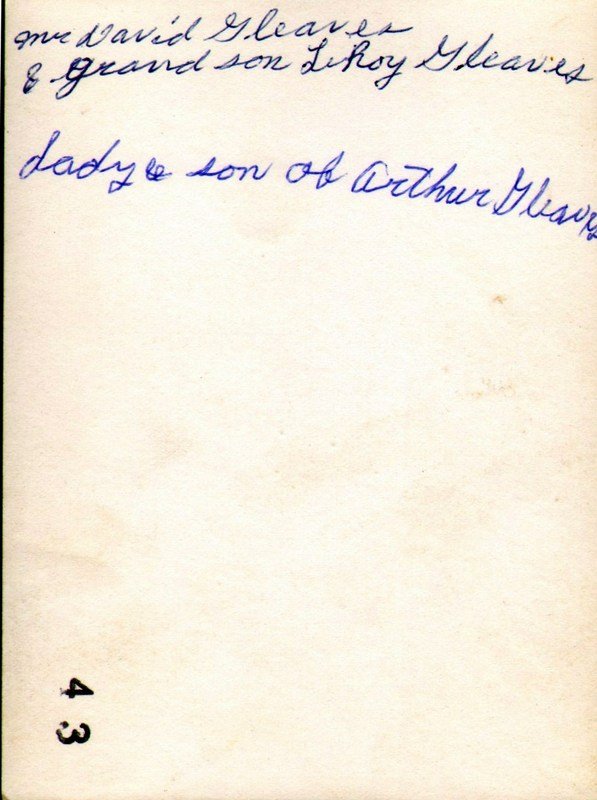 Mr David Gleaves
& grand son LeRoy Gleaves
dady & son of Arthur Gleaves
43